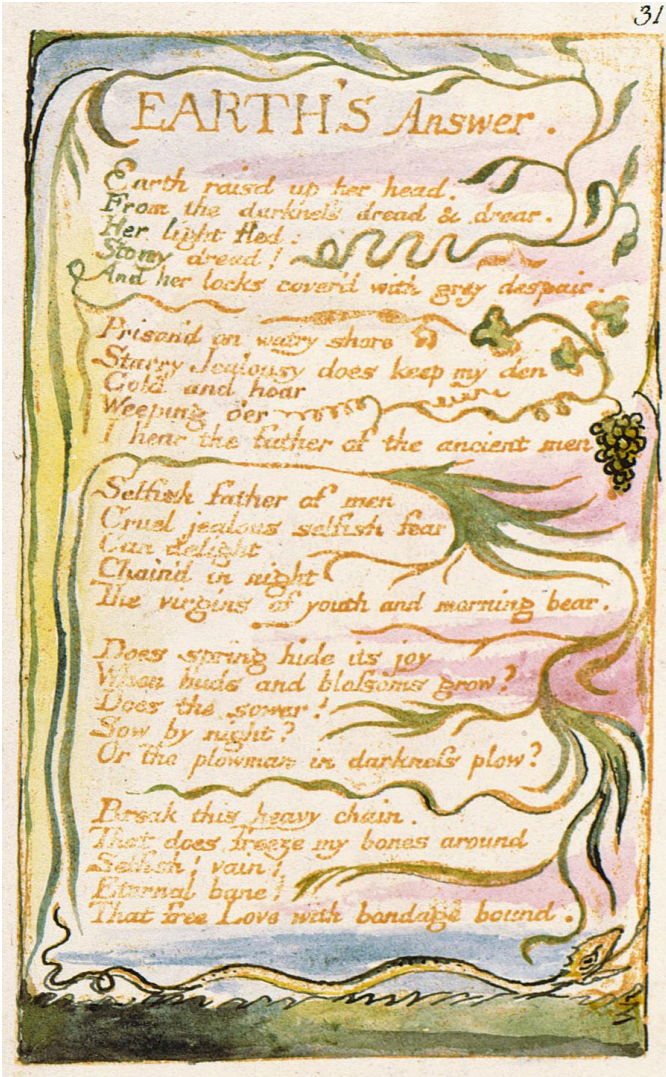 31
EARTH'S Answer.
Earth rais'd up her head.
From the darkness dread & drear.
Her light fled:
Stony dread!
And her locks cover'd with grey despair.
Prison'd on watry shore
Starry Jealousy does keep my den
Cold and hoar
Weeping o'er
I hear the father of the ancient men
Selfish father of men
Cruel jealous selfish fear
Can delight
Chain'd in night
The virgins of youth and morning bear.
Does spring hide its joy
When buds and blossoms grow?
Does the sower!
Sow by night?
Or the plowman in darkness plow?
Break this heavy chain.
That does freeze my bones around
Selfish! vain!
Eternal bane!
That free Love with bondage bound.